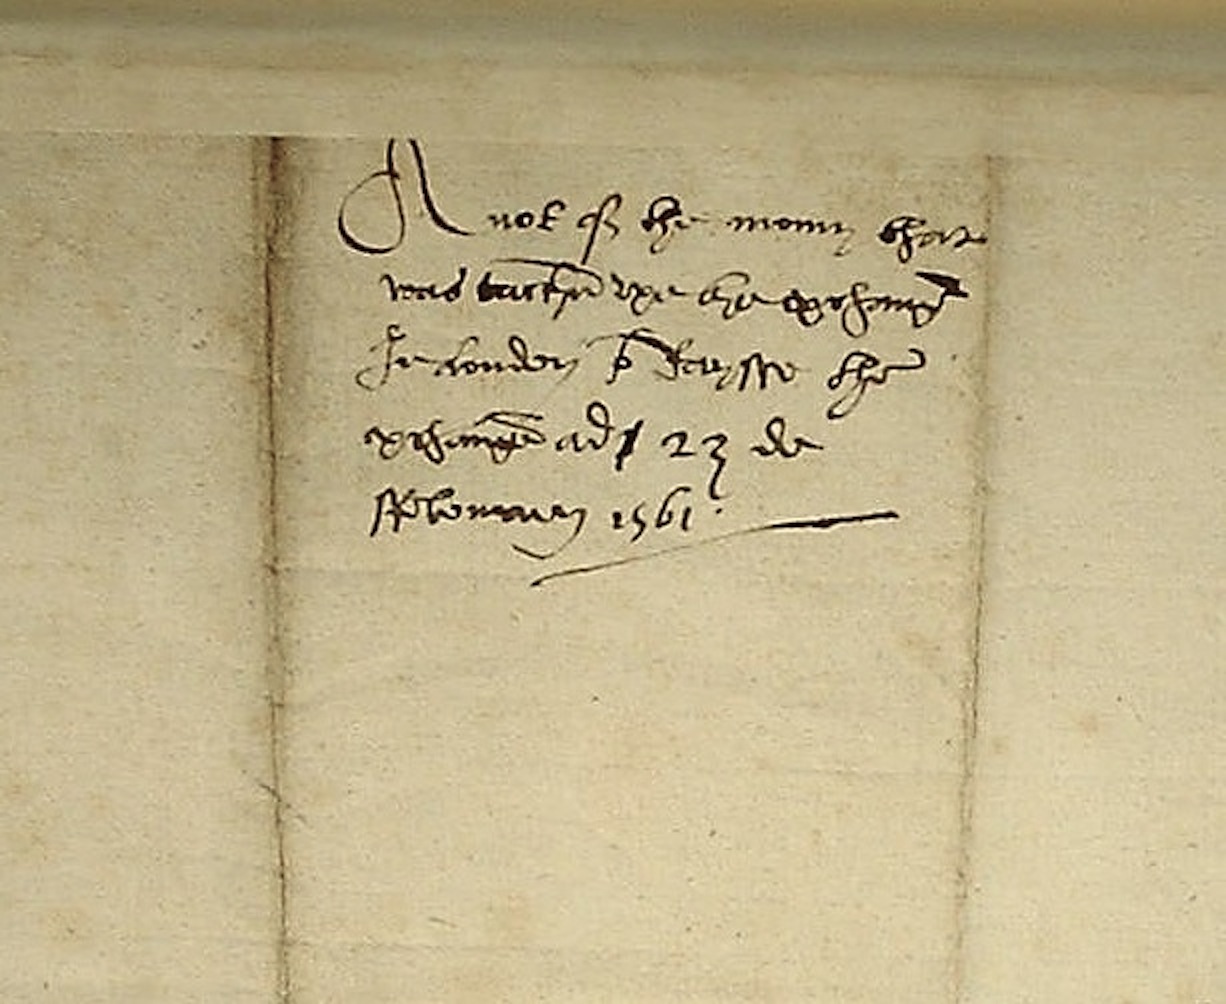 A not of the monny that
was tacken vpe the exchange
In london to Raysse the
exchange ad 23 de
ffebewary 1561